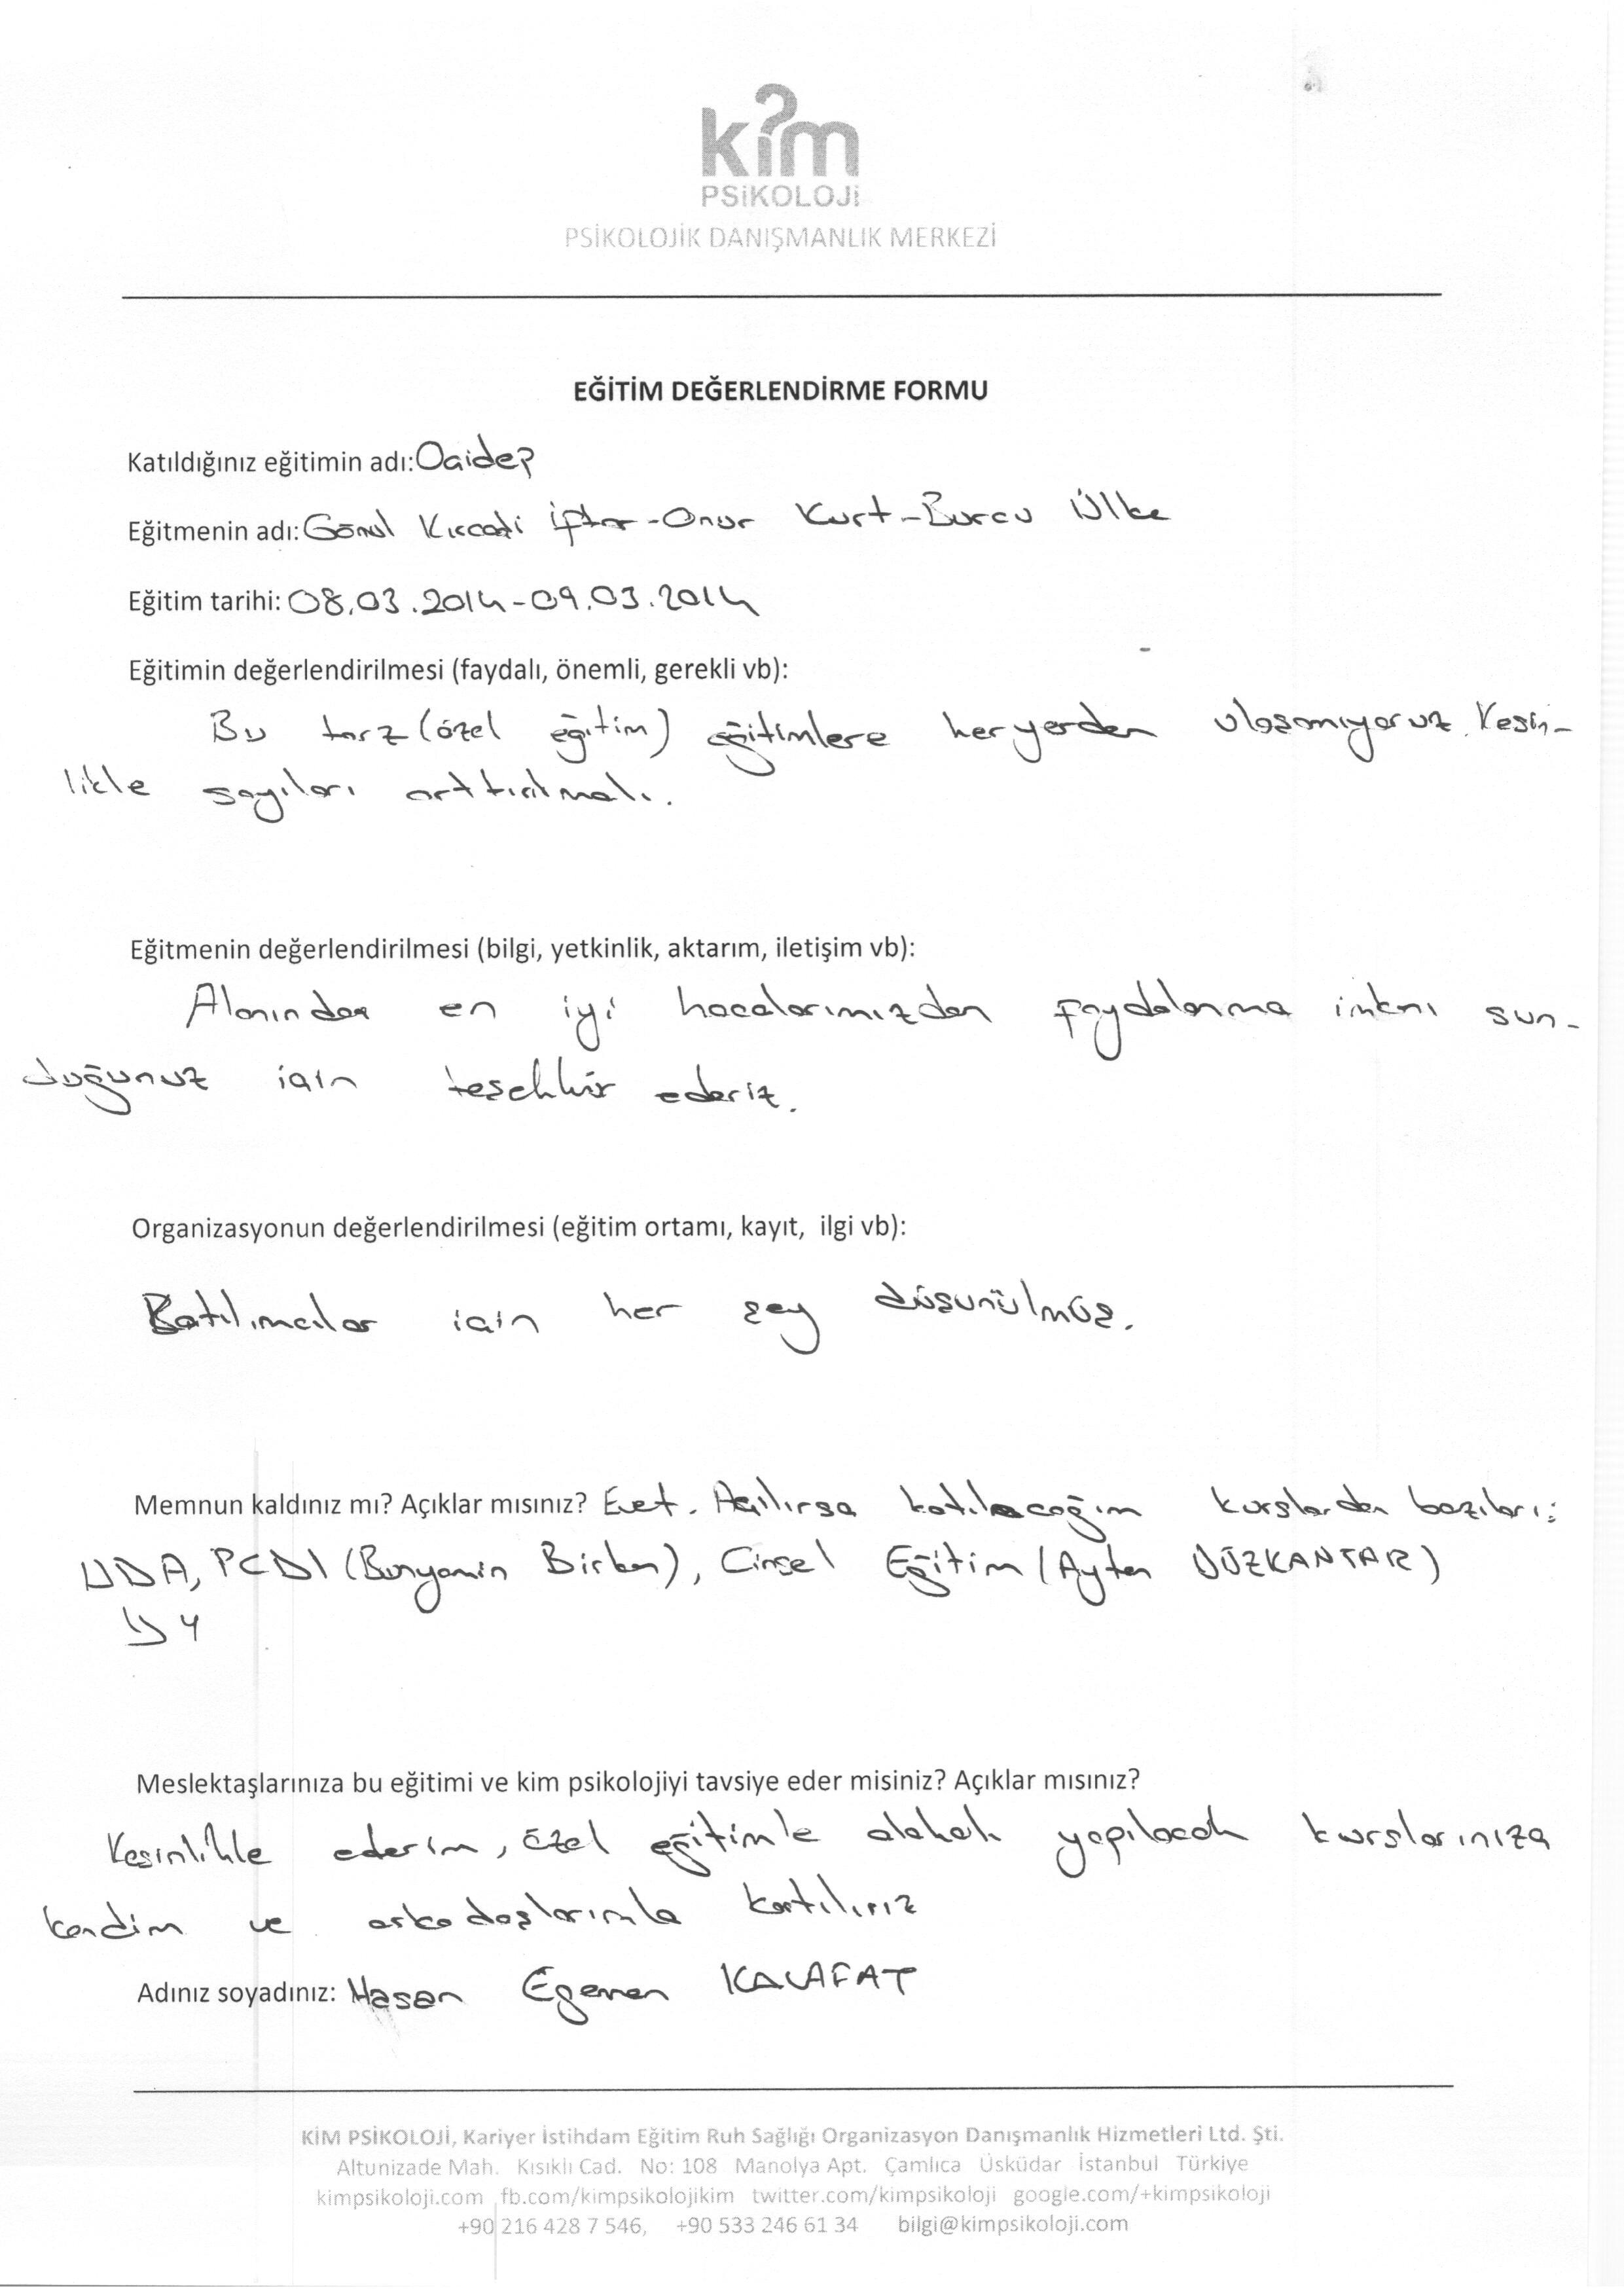 kim
PSİKOLOJİ
PSİKOLOJİK DANIŞMANLIK MERKEZİ
EĞİTİM DEĞERLENDİRME FORMU
Katıldığınız eğitimin adı: Oçidep
Eğitmenin adı: Gönül Kırcaali İftar - Onur Kurt - Burcu Ülke
Eğitim tarihi: 08.03.2014 - 09.03.2014
Eğitimin değerlendirilmesi (faydalı, önemli, gerekli vb):
Bu tarz (özel eğitim) eğitimlere heryerden ulaşamıyoruz. Kesin-
likle sayıları arttırılmalı.
Eğitmenin değerlendirilmesi (bilgi, yetkinlik, aktarım, iletişim vb):
Alanından en iyi hocalarımızdan faydalanma imkanı sun-
duğunuz için teşekkür ederiz.
Organizasyonun değerlendirilmesi (eğitim ortamı, kayıt, ilgi vb):
Katılımcılar için her şey düşünülmüş.
Memnun kaldınız mı? Açıklar mısınız? Evet. Açılırsa katılacağım kurslardan bazıları:
UDA, PCDI (Bunyamin Birkan), Cinsel Eğitim (Ayten DÜZKANTAR)
Meslektaşlarınıza bu eğitimi ve kim psikolojiyi tavsiye eder misiniz? Açıklar mısınız?
Kesinlikle ederim, özel eğitimle alakalı yapılacak kurslarınıza
kendim ve arkadaşlarımla katılırız
Adınız soyadınız: Hasan Egemen KALAFAT
KİM PSİKOLOJİ, Kariyer İstihdam Eğitim Ruh Sağlığı Organizasyon Danışmanlık Hizmetleri Ltd. Şti.
Altunizade Mah. Kısıklı Cad. No: 108 Manolya Apt. Çamlıca Üsküdar İstanbul Türkiye
kimpsikoloji.com fb.com/kimpsikolojikim twitter.com/kimpsikoloji google.com/+kimpsikoloji
+90 216 428 7 546, +90 533 246 61 34 bilgi@kimpsikoloji.com